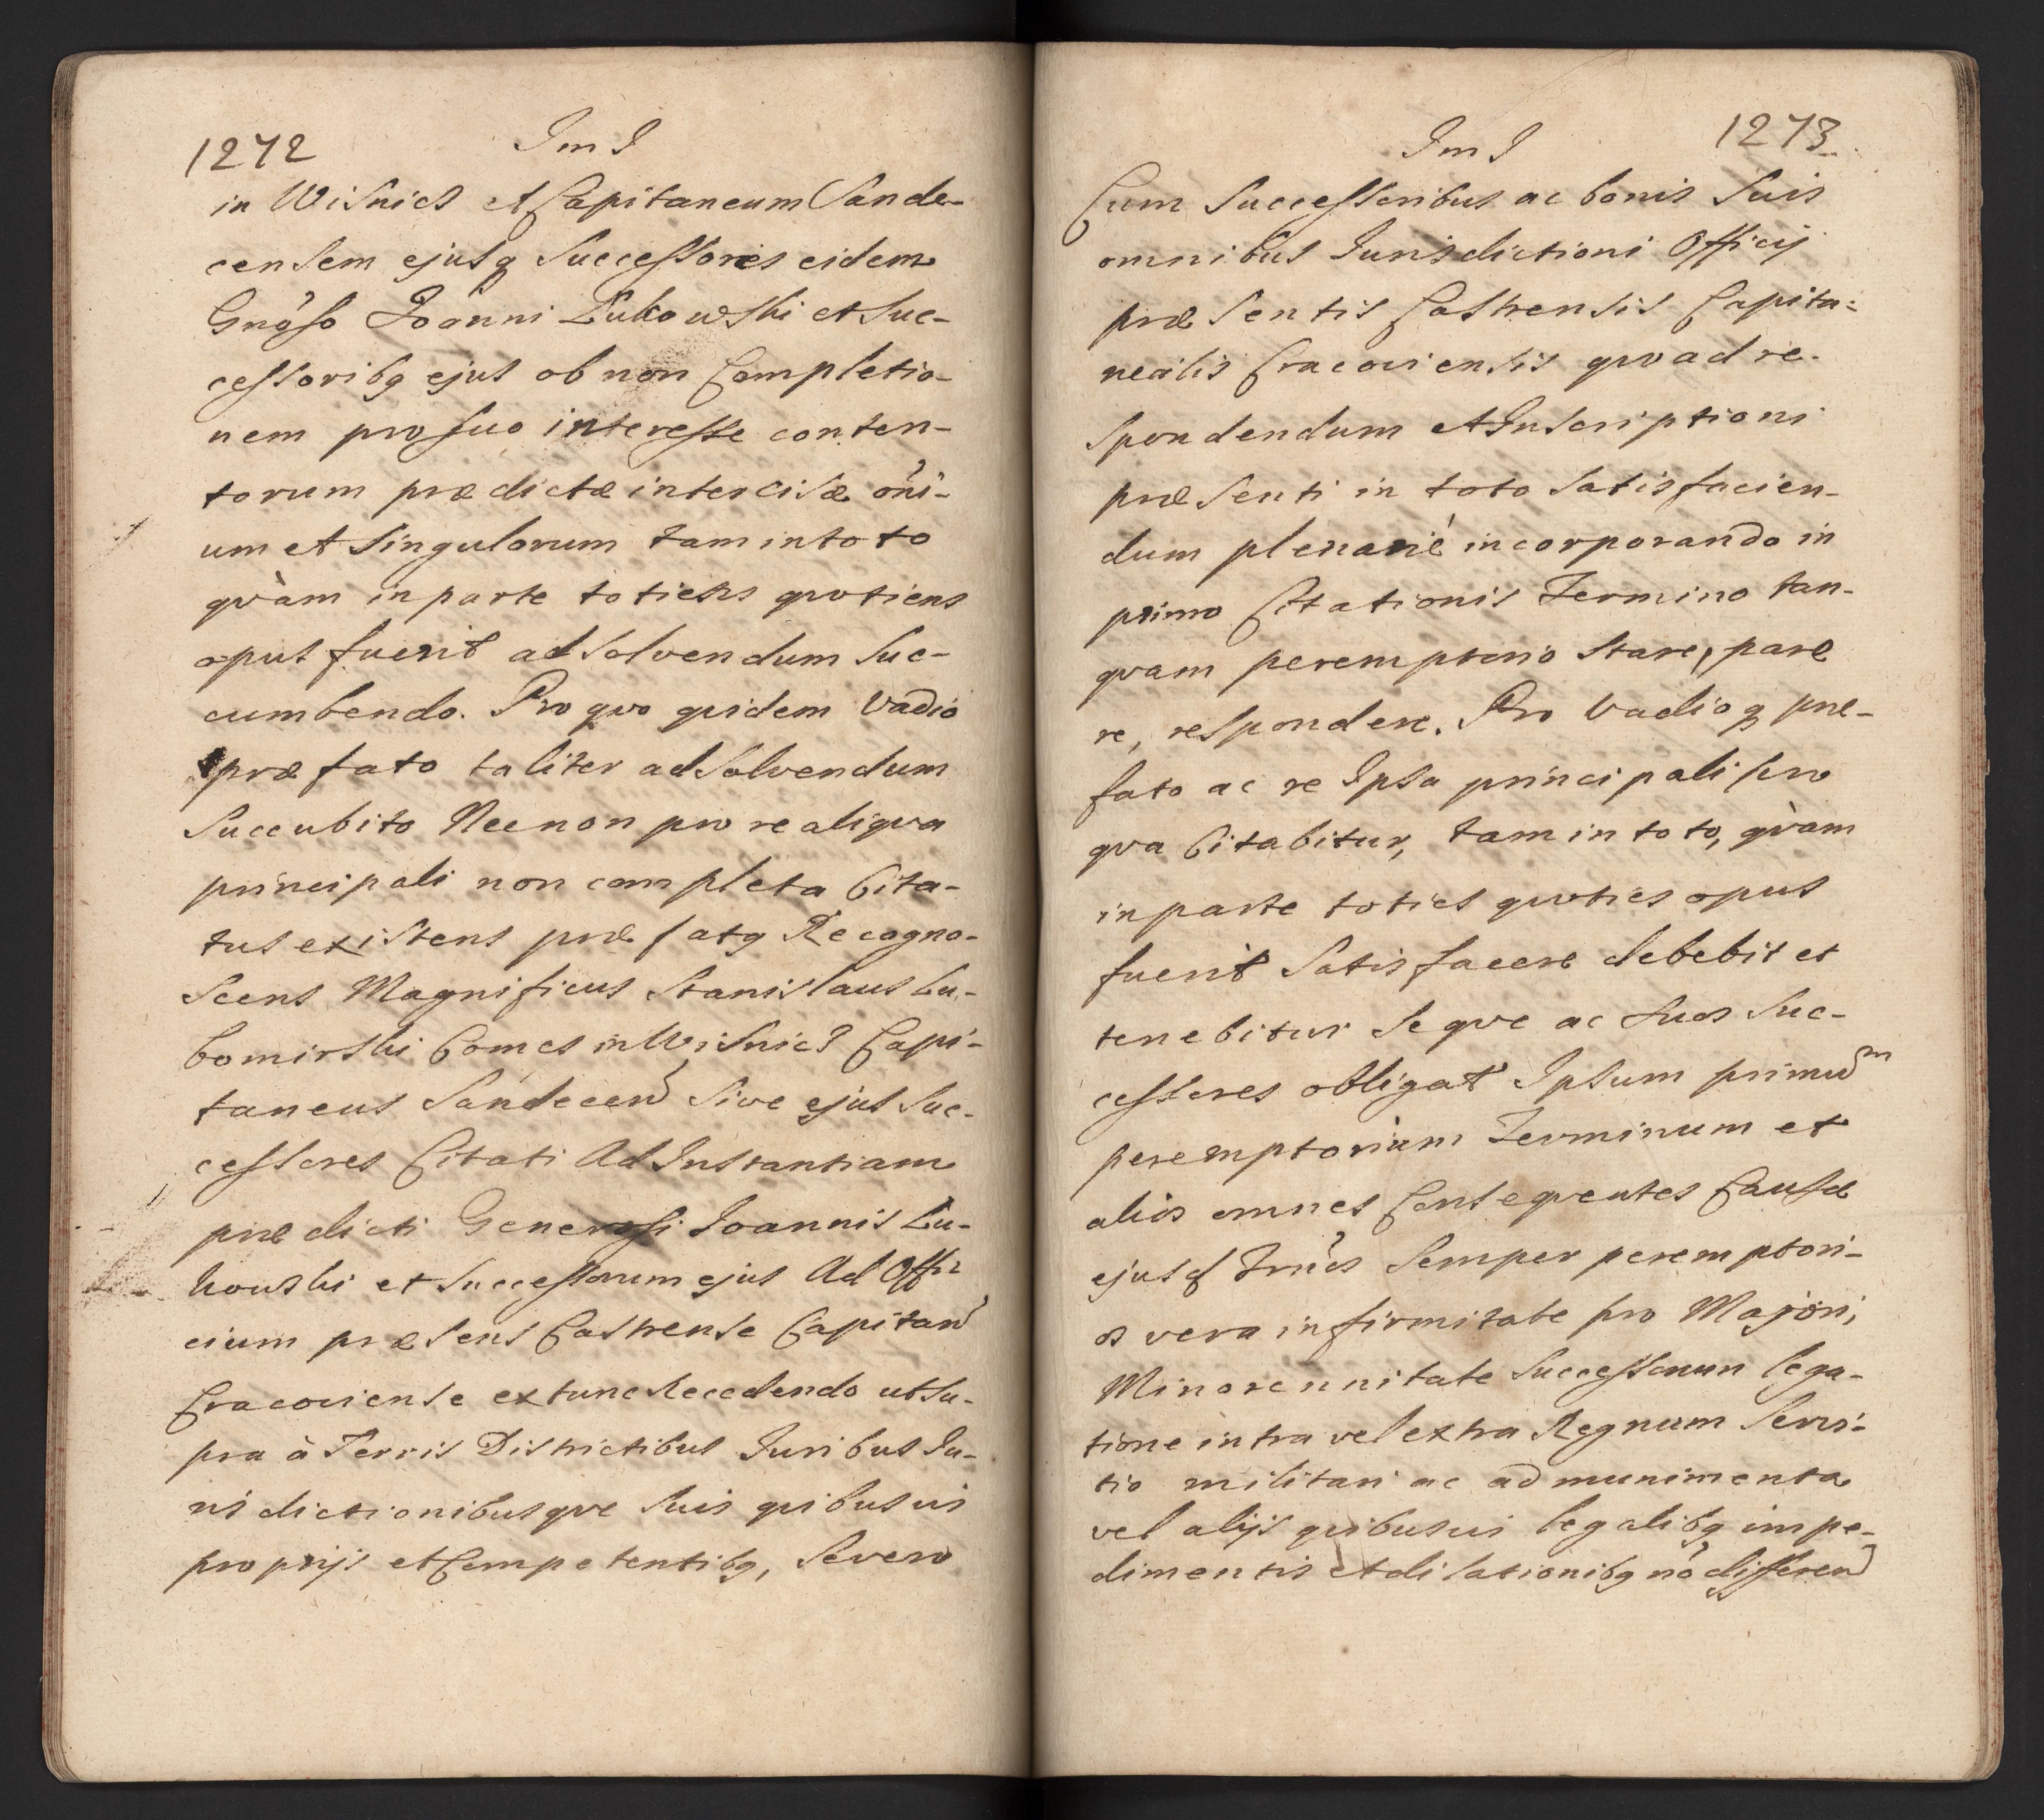 1272
Im I
in Wisnicz et Capitaneum Sande-
censem ejusq Successores eidem
Gnoso Joanni Lukowski et Suc-
cessoribq ejus ob non Completio-
nem pro suo interesse conten-
torum prædictæ intercisæ oni-
um et Singulorum tam in toto
qvàm in parte totiens qvotiens
opus fuerit ad Solvendum Suc-
cumbendo. Pro qvo qvidem Vadio
præfato taliter ad Solvendum
Succubito Necnon pro re aliqva
principali non completa Cita-
tus existens præfatq Recogno-
Scens Magnificus Stanislaus Lu-
bomirski Comes in Wisnicz Capi-
taneus Sandecen Sive ejus Suc-
cessores Citati Ad Instantiam
prædicti Generosi Joannis Lu-
kowski et Successorum ejus Ad Offi
cium præsens Castrense Capitan
Cracoviense extunc Recedendo ut Su-
pra à Terris Districtibus Juribus Ju-
risdictionibusqve Suis qvibusvis
proprijs et Competentibq, Severo
1273
Im I
Cum Successoribus ac bonis Suis
omnibus Jurisdictioni Officij
præsentis Castrensis Capita-
nealis Cracoviensis qvoad re-
spondendum et Inscriptioni
præsenti in toto Satisfacien-
dum plenariè incorporando in
primo Citationis Termino tan-
qvam peremptorio Stare, pare
re, respondere. Pro Vadioq præ-
fato ac re Ipsa principali pro
qva Citabitur, tam in toto, qvàm
in parte toties qvoties opus
fuerit Satisfacere debebit et
tenebitur Seqve ac Suos Suc-
cessores obligat Ipsum primum
peremptorium Terminum et
alios omnes Conseqventes Causæ
ejusd Trnos Semper peremptori-
os vera infirmitate pro Majori,
Minorennitate Successorum lega-
tione intra vel extra Regnum Servi-
tio militari ac ad munimenta
vel alijs qvibusvis legalibq impe-
dimentis et dilationibq nò differen